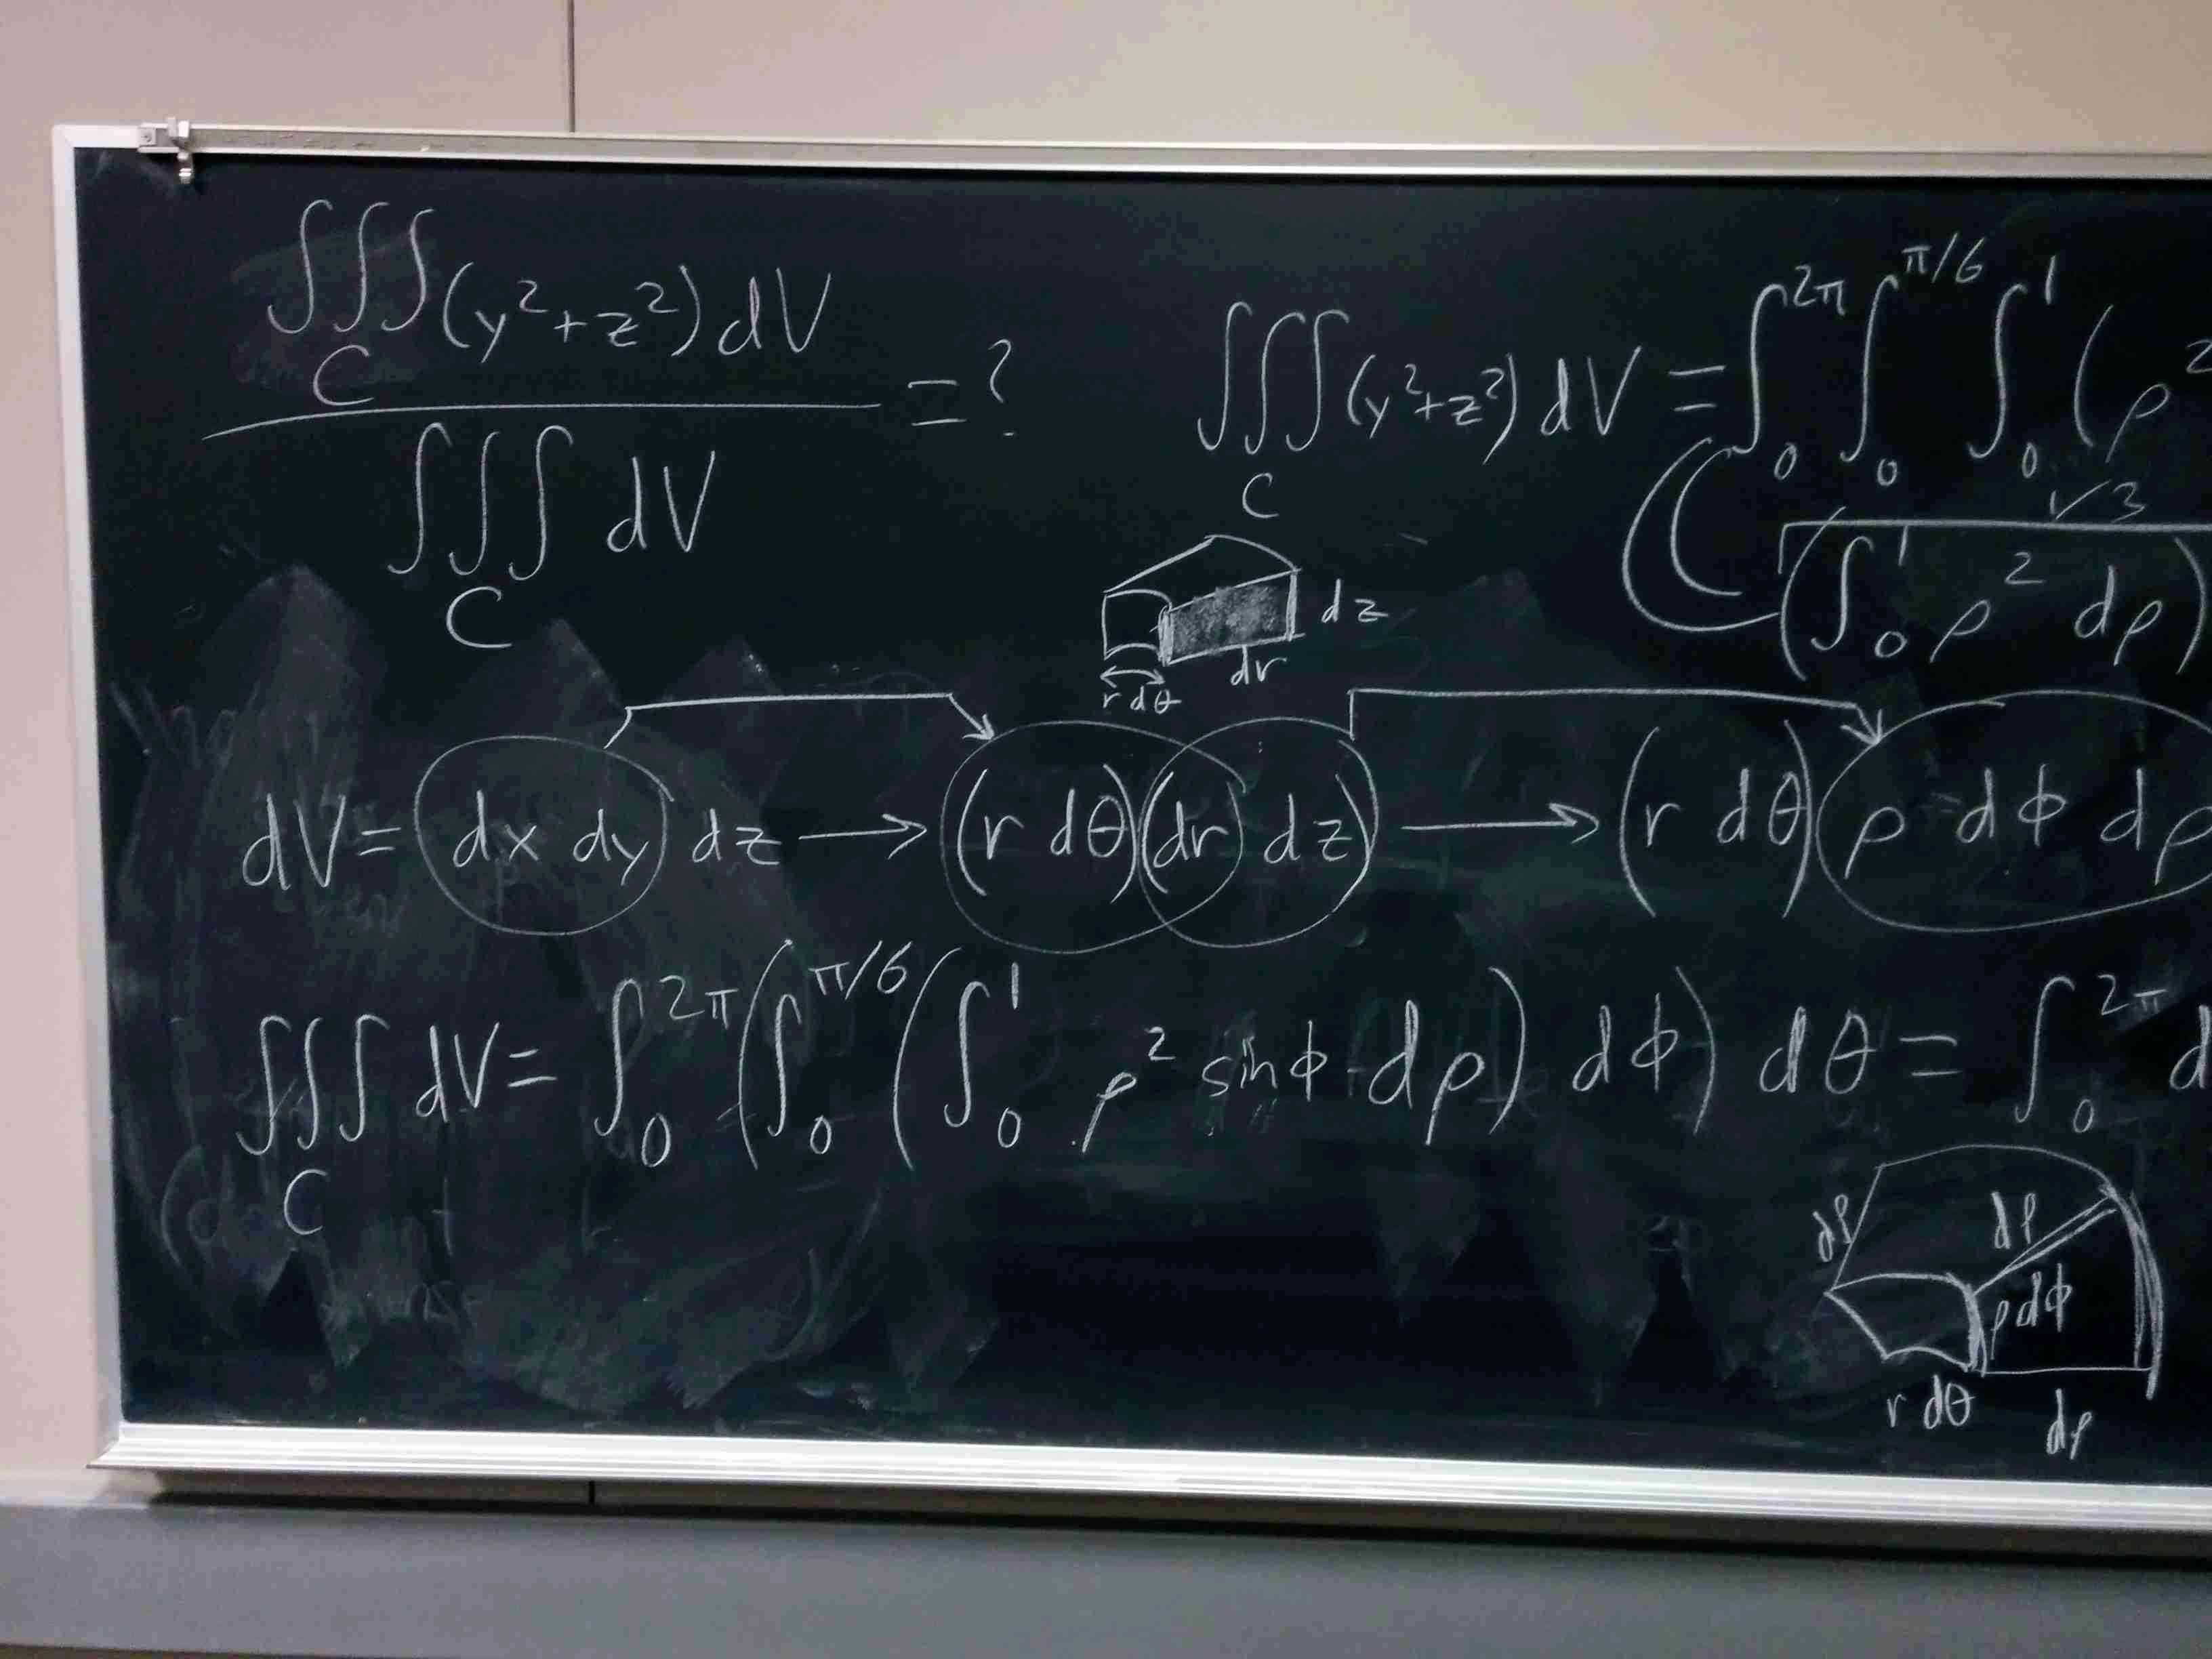 ∫∫∫_C (y² + z²) dV
= ?
∫∫∫_C dV
∫∫∫_C (y² + z²) dV = ∫₀^{2π} ∫₀^{π/6} ∫₀^1 (ρ²
1/3
(∫₀^1 ρ² dρ)
dz
dr
r dθ
dV = dx dy dz → (r dθ)(dr dz) → (r dθ) ρ dϕ dρ
∫∫∫_C dV = ∫₀^{2π} (∫₀^{π/6} (∫₀^1 ρ² sinϕ dρ) dϕ) dθ = ∫₀^{2π} d
dρ
dρ
ρ dϕ
r dθ
dρ